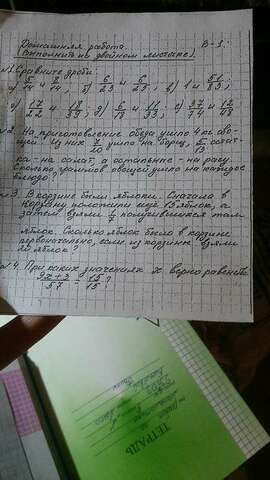 Домашняя работа В-1.
(выполнить на двойном листочке).
№1. Сравните дроби:
а) 5/14 и 9/14; б) 6/23 и 6/25; в) 1 и 51/83;
г) 17/22 и 18/39; д) 6/18 и 11/33; е) 37/74 и 12/48
№2. На приготовление обеда ушло 4 кг ово-
щей. Из них 7/20 ушло на борщ,
ка - на салат, а остальные - на рагу.
Сколько граммов овощей ушло на каждое
блюдо?
№3. В корзине были яблоки. Сначала в
корзину положили ещё 18 яблок, а
затем взяли 1/7 получившихся там
яблок. Сколько яблок было в корзине
первоначально, если из корзины взяли
яблок?
№4. При каких значениях х верно равенство
9х+3/57 = 15/15?
ТЕТРАДЬ